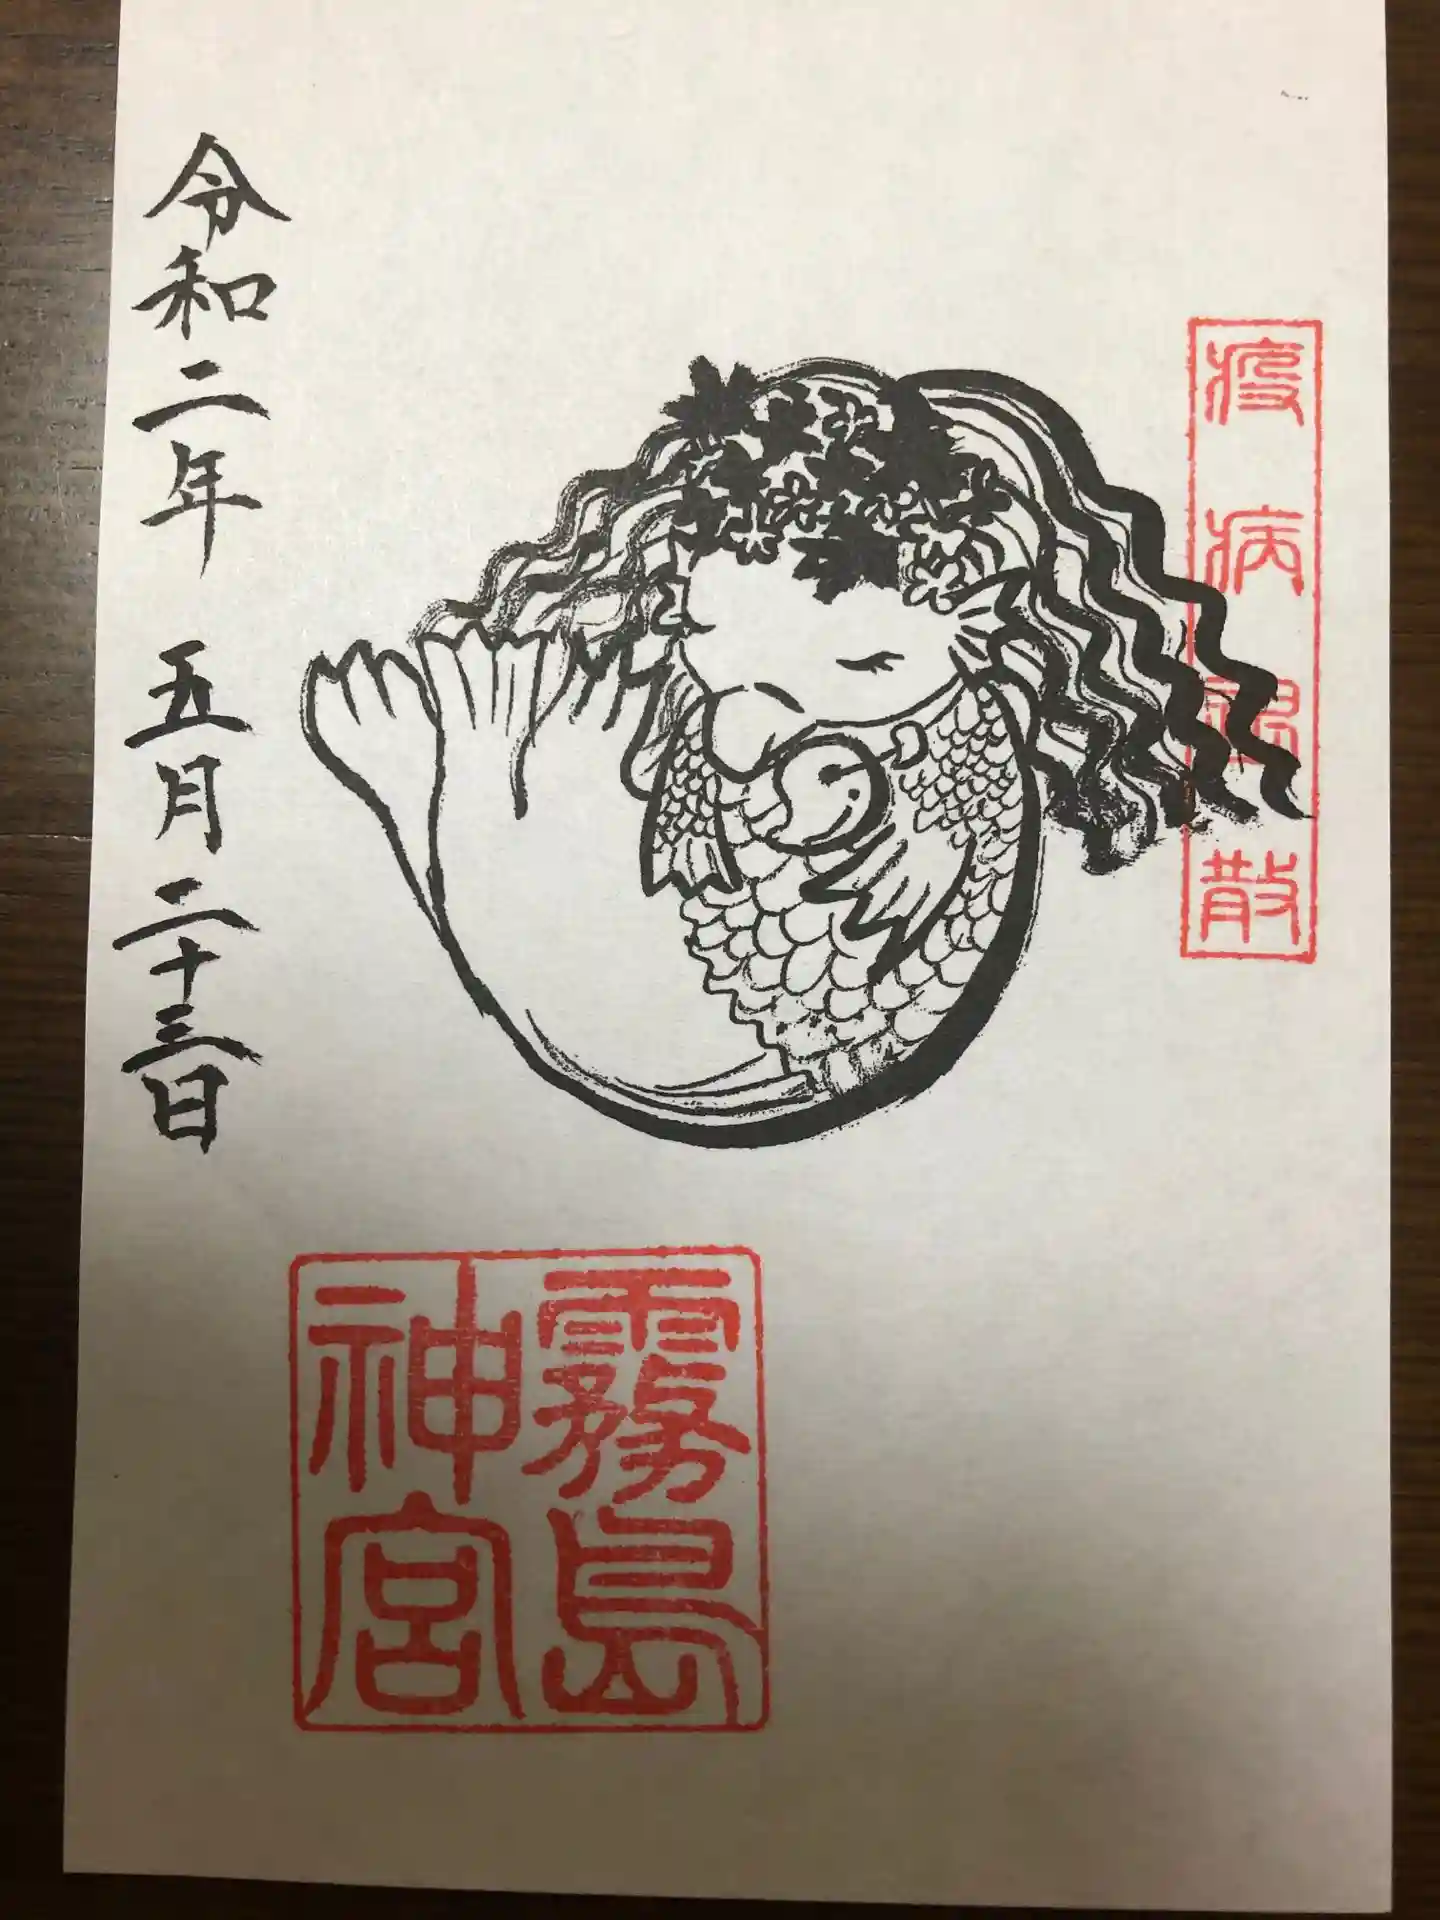 疫病退散
霧島
神宮
令和二年 五月二十三日